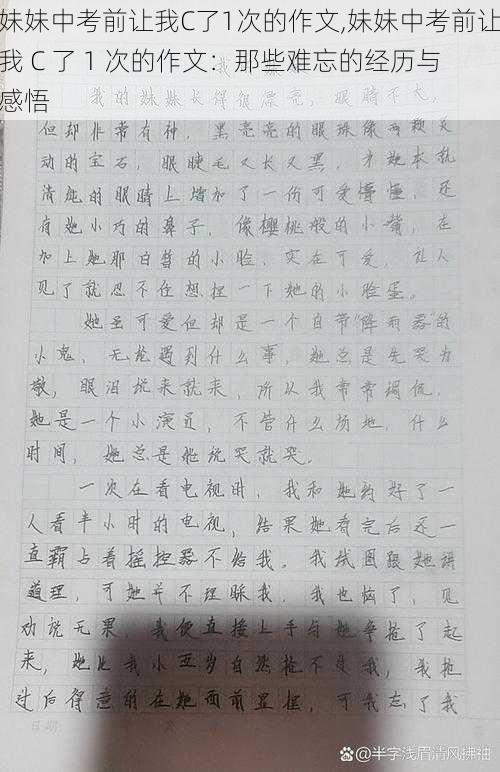 妹妹中考前让我C了1次的作文,妹妹中考前让
我 C 了 1 次的作文：那些难忘的经历与
感悟
我的妹妹长得很漂亮，眼睛不大，
但却非常有神，黑亮亮的眼珠像两颗灵
动的宝石，眼睫毛又长又黑，为她本就
清纯的眼睛上增加了一份可爱懵懂，还
有她小巧的鼻子，像樱桃般的小嘴，在
加上她那白皙的小脸，实在可爱，让人
见了就忍不住想捏一下她的小脸蛋。
她虽可爱但却是一个自带“降雨器”的
小鬼，无论遇到什么事，她总是先哭为
敬，眼泪说来就来，所以我常常调侃，
她是一个小演员，不管什么场地，什么
时间，她总是她说哭就哭。
一次在看电视时，我和她约好了一
人看半小时的电视，结果她看完后还一
直霸占着摇控器不给我。我试图跟她讲
道理，可她并不理睬我，我也恼了，见
劝说无果，我便直接上手与她争抢了起
来，她比我小五岁自然抢不过我，我抢
过后得意的在她面前显摆，可我忘了我
日期：
@半字浅眉清风拂袖